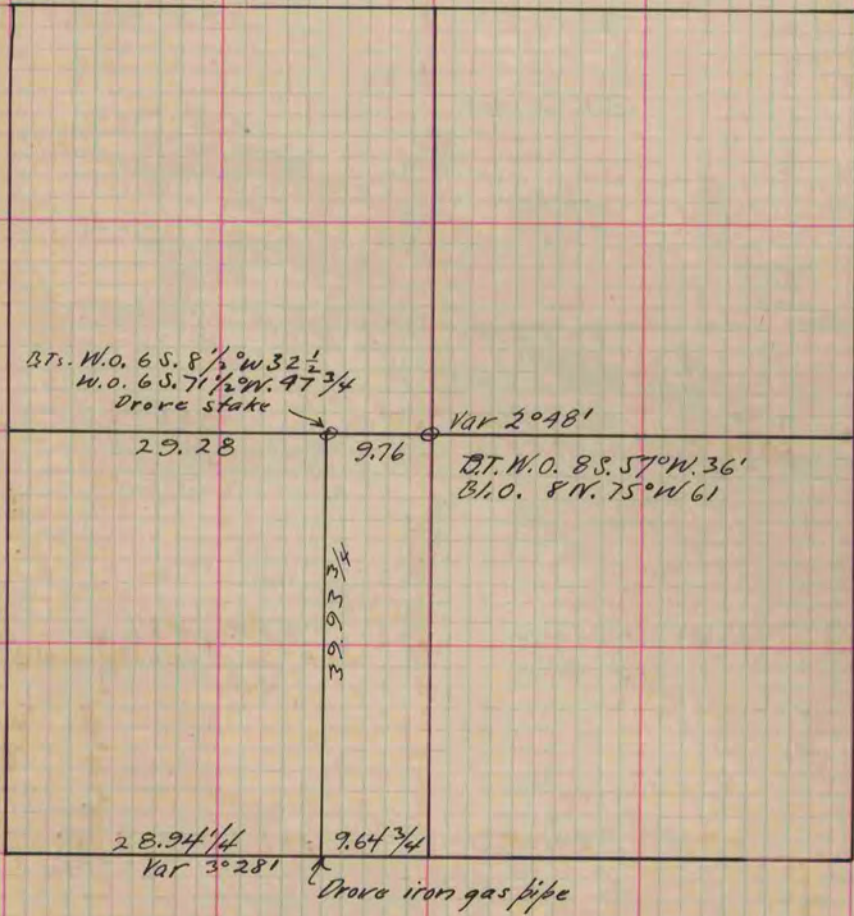 BTs. W.O. 6 S. 8 1/2° W 32 1/2
W.O. 6 S. 71 1/2° W. 47 3/4
Drove stake
Var 2°48'
29.28
9.76
B.T. W.O. 8 S. 57° W. 36'
Bl.O. 8 N. 75° W 61
39.93 3/4
28.94 1/4
9.64 3/4
Var 3°28'
Drove iron gas pipe